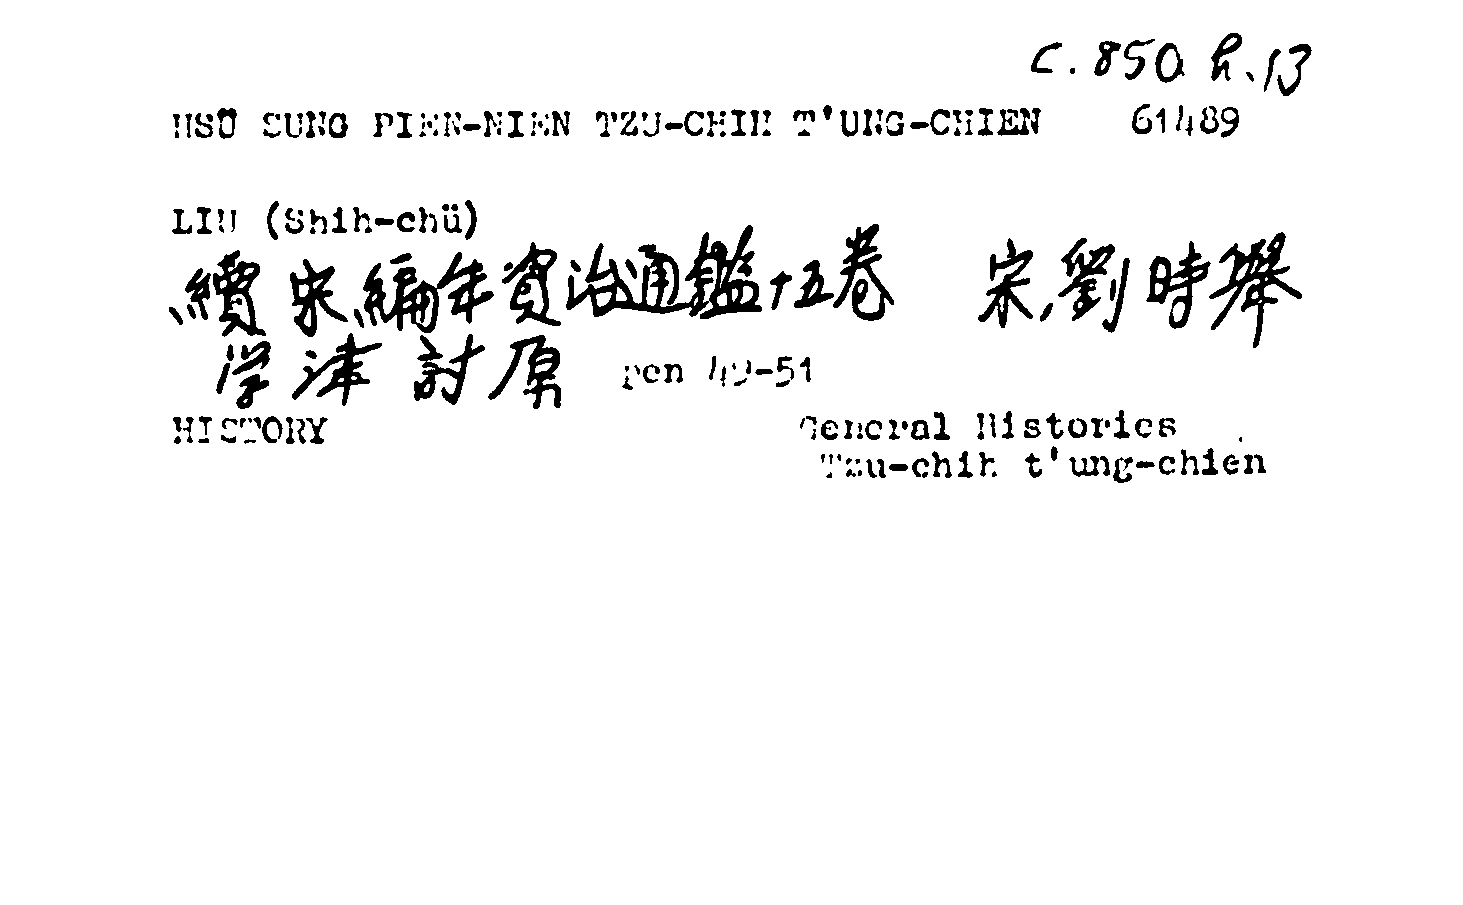 c.850 h.13
HSÜ SUNG PIEN-NIEN TZU-CHIH T'UNG-CHIEN 61489
LIU (Shih-chü)
續宋編年資治通鑑十五卷 宋,劉時舉
学津討原 pen 49-51
HISTORY General Histories
Tzu-chih t'ung-chien